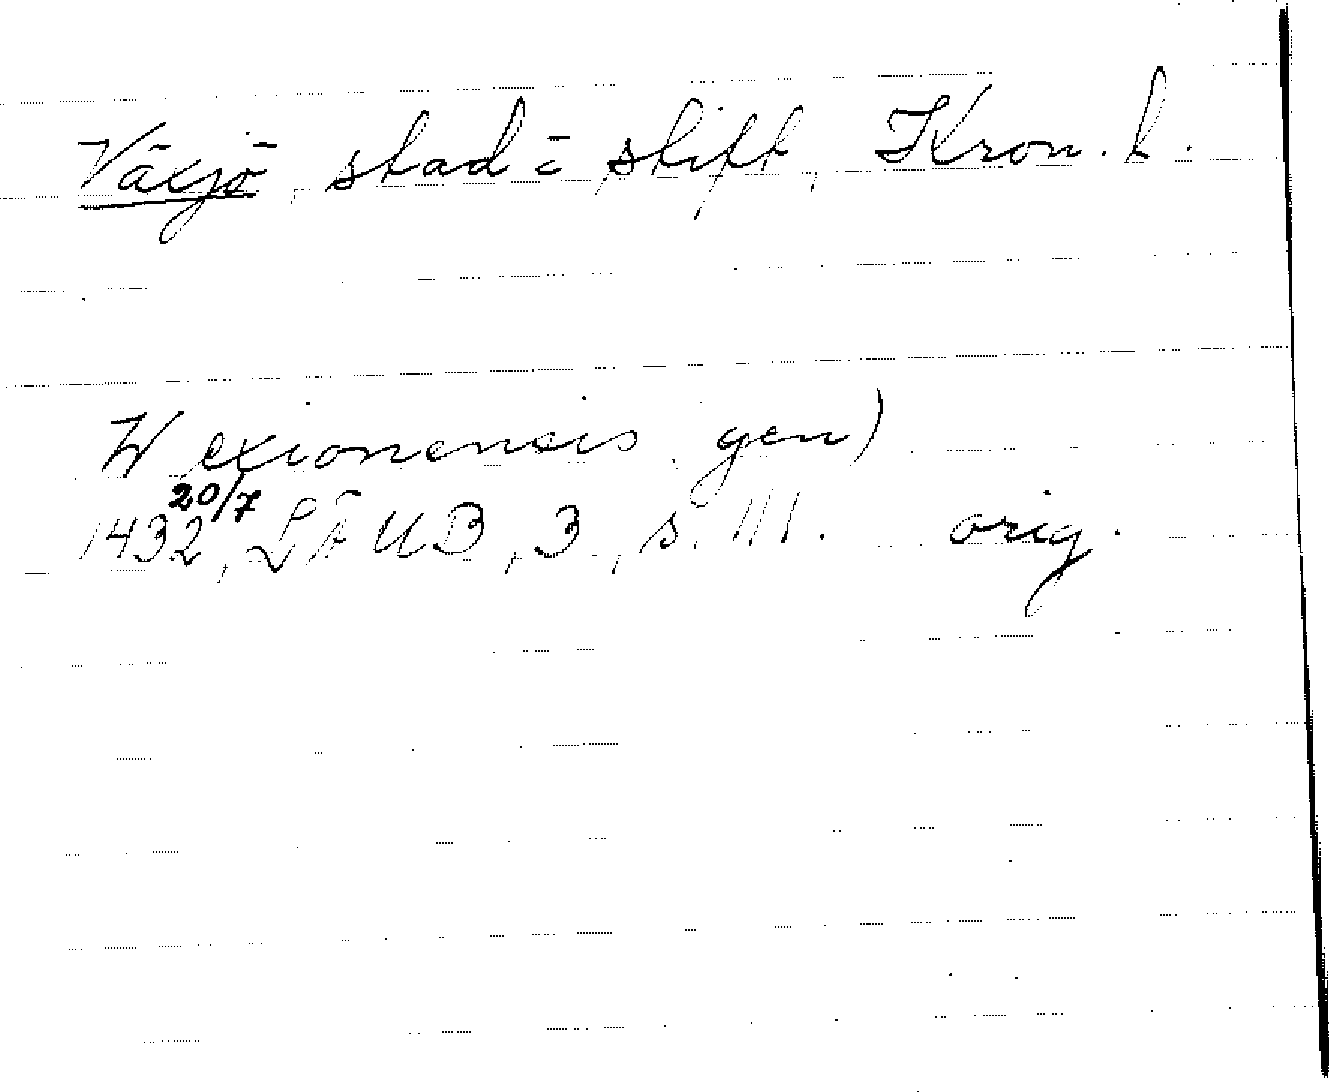 Växjö, stad o stift, Kron. l.
Wexionensis gen)
1432 20/7, LÄUB, 3, s. 111. orig.